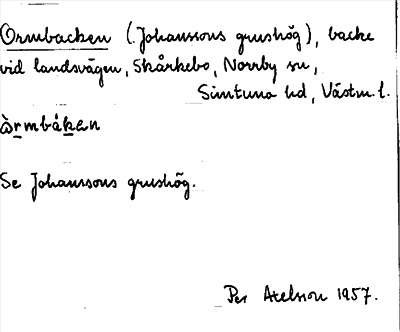 Ormbacken (Johanssons grushög), backe
vid landsvägen, Skärkebo, Norrby sn,
Simtuna hd, Västm. l.
òrmbàken
Se Johanssons grushög.
Per Axelsson 1957.